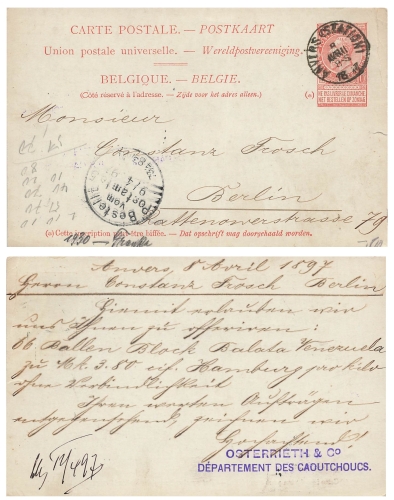 CARTE POSTALE. — POSTKAART
Union postale universelle. — Wereldpostvereeniging.
BELGIQUE. — BELGIE.
(Côté réservé à l'adresse. — Zijde voor het adres alleen.)
(a)
ANVERS (STATION)
NE PAS LIVRER LE DIMANCHE
NIET BESTELLEN OP ZONDAG
Monsieur
Constanz Frosch
Bestellt
vom
Postamte
9/4
Berlin
Rathenowerstrasse 79
(a) Cette inscription peut être biffée. — Dat opschrift mag doorgehaald worden.
1930 —
Anvers, 8 April 1897
Herrn Constanz Frosch Berlin
Hiemit erlauben wir
uns Ihnen zu offeriren:
66 Ballen Block Balata Venezuela
zu Mk. 3.80 cif. Hamburg pro kilo
ohne Verbindlichkeit
Ihren werten Aufträgen
entgegensehend, zeichnen wir
Hochachtend
OSTERRIETH & Co
DÉPARTEMENT DES CAOUTCHOUCS.